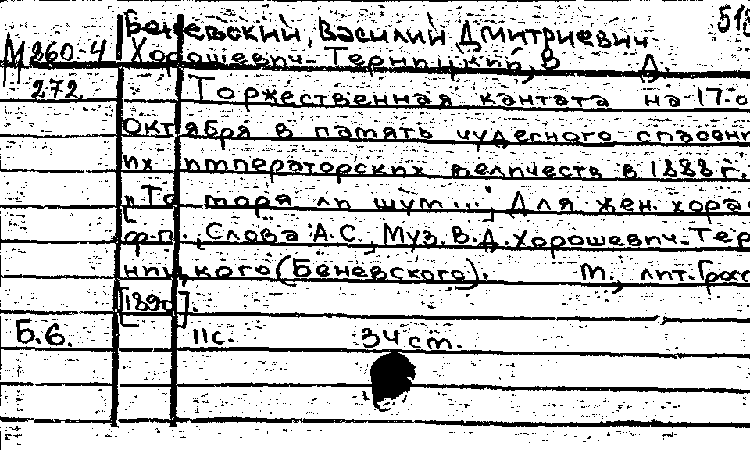 Беневский, Василий Дмитриевич 518
М 260-4 Хорошевич-Терницкий, В. Д.
272 Торжественная кантата на 17-о
октября в память чудесного спасени
их императорских величеств в 1888 г.
"То моря ли шум..." Для жен. хора
ф.п., Слова А.С., Муз. В.Д. Хорошевич-Тер
ницкого (Беневского). М., лит. Гросс
[1890].
Б.6. 11с. 34 ст.